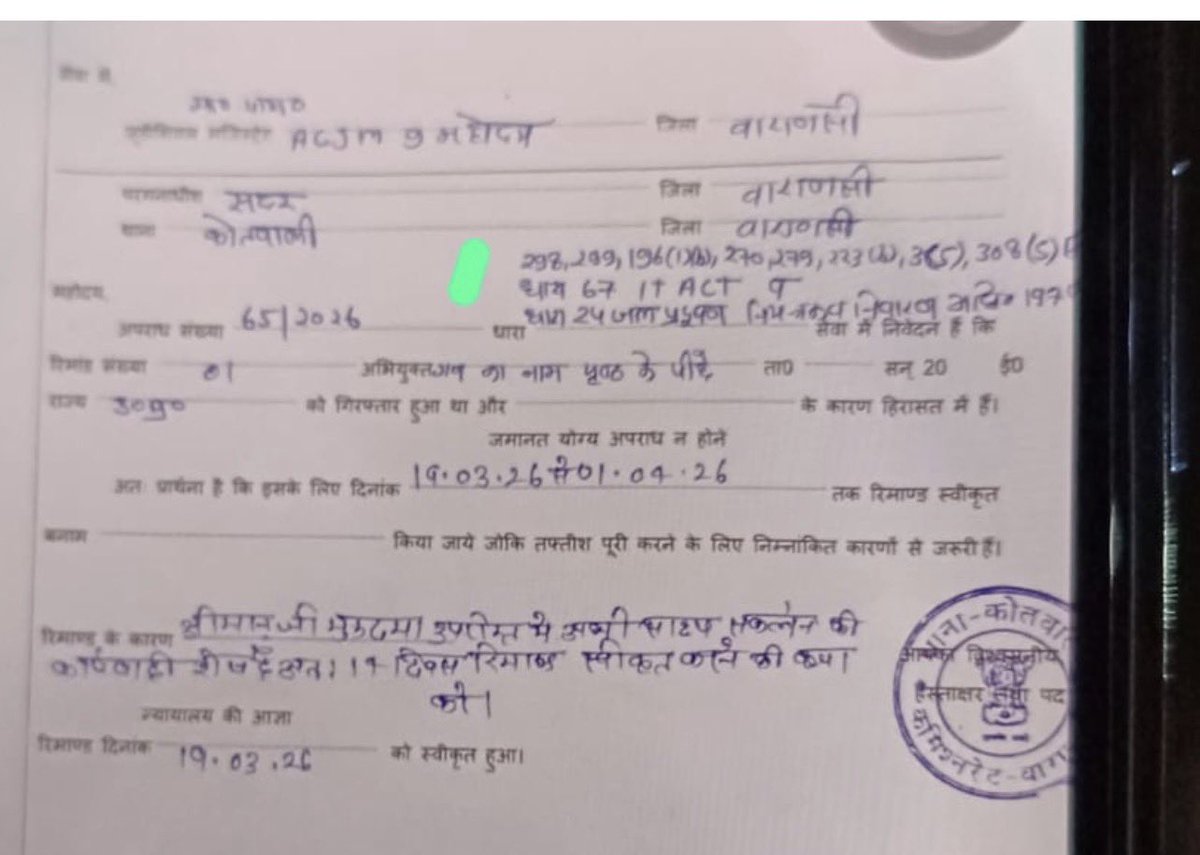 सेवा में,
ACJM 9 महोदय जिला वाराणसी
सदर जिला वाराणसी
थाना कोतवाली जिला वाराणसी
298, 299, 196(1)(b), 270, 279, 223(b), 3(5), 308(5)
महोदय, धारा 67 IT ACT व
अपराध संख्या 65/2026 धारा धारा 24 जल प्रदूषण निवारण 197
सेवा में निवेदन है कि
रिमांड संख्या 01 अभियुक्तगण का नाम पृष्ठ के पीछे ता0 सन् 20 ई0
राज्य उ0प्र0 को गिरफ्तार हुआ था और के कारण हिरासत में हैं।
जमानत योग्य अपराध न होने
अतः प्रार्थना है कि इसके लिए दिनांक 19.03.26 से 01.04.26 तक रिमाण्ड स्वीकृत
बनाम किया जाये जोकि तफ्तीश पूरी करने के लिए निम्नांकित कारणों से जरूरी हैं।
रिमाण्ड के कारण श्रीमान् जी मुकदमा उपरोक्त में अभी साक्ष्य संकलन की
कार्यवाही शेष है अतः 14 दिवस रिमाण्ड स्वीकृत करने की कृपा
करें।
आपका विश्वसनीय
हस्ताक्षर तथा पद
न्यायालय की आज्ञा
रिमाण्ड दिनांक 19.03.26 को स्वीकृत हुआ।
थाना-कोतवा
कमिश्नरेट-वारा